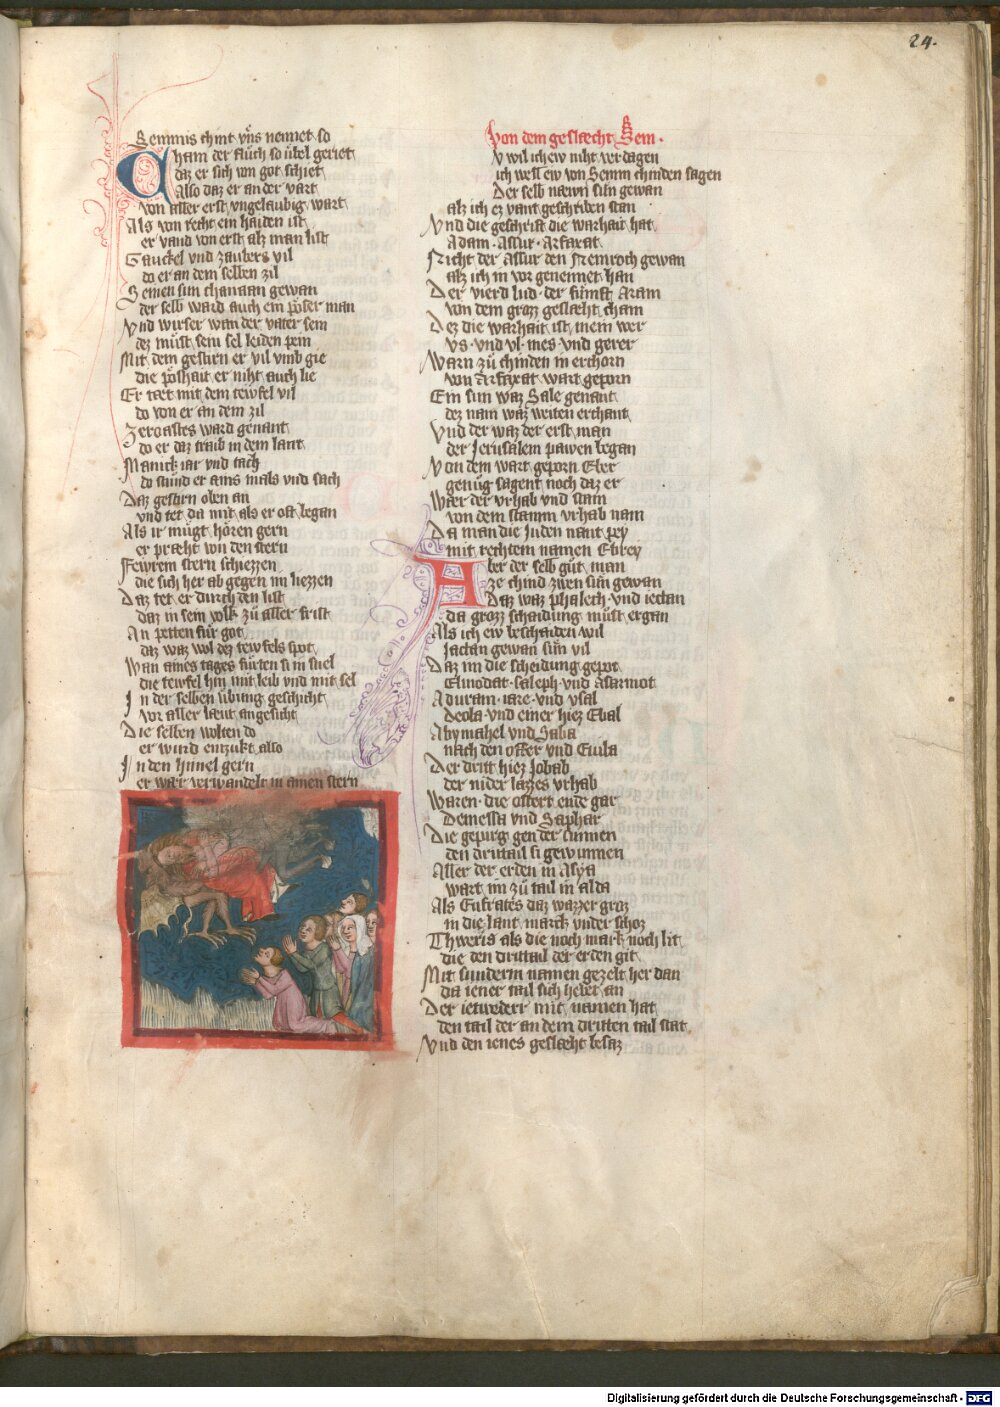 24.
Semmis chint vns nennet so
Cham der fluch so übel geriet
daz er sich von got schiet
Also daz er an der vart
von aller erst vngelaubig wart
Als von recht ein haiden ist
er vand von erst alz man list
Gauckel vnd zaubers vil
do er an dem selben zil
Seinen sun chanaan gewan
der selb ward auch ein poser man
Vnd wirser wan der vater sein
dez müst sein sel leiden pein
Mit dem gestirn er vil vmb gie
die poshait er niht auch lie
Er taet mit dem tewfel vil
do von er an dem zil
Zeroastes ward genant
do er daz traib in dem lant
Manick iar vnd tach
do stund er ains mals vnd sach
Daz gestirn oben an
vnd tet da mit als er oft began
Als ir mügt hören gern
er praeht von den stern
Fewrein stern schiezzen
die sich her ab gegen im liezzen
Daz tet er durch den list
daz in sein volk zü aller frist
An petten für got
daz waz wol dez tewfels spot
Wan aines tages fürten si in snel
die tewfel hin mit leib vnd mit sel
In der selben übung geschicht
vor aller laeut angesicht
Die selben wolten do
er wurd enzukt also
In den himel gern
er waer verwandelt in ainen stern
Von dem geslaecht Sem.
Nv wil ich ew niht verdagen
ich well ew von Semm chinden sagen
Der selb naewn sün gewan
alz ich ez vant geschriben stan
Vnd die geschrift die warhait hat
Adam. Assur. Arfaxat.
Nicht der Assur den Nemroch gewan
alz ich in vor genennet han
Der vierd lud. der fünft Aram
von dem grozz geslaeht cham
Dez die warhait ist mein wer
vs. vnd vl. mes. vnd geter
Warn zü chinden in erchorn
von Arfaxat wart geporn
Ein sun waz Sale genant
dez nam waz weiten erchant
Vnd der waz der erst man
der Jerusalem pawen began
Von dem wart geporn Eber
genüg sagent noch daz er
Waer der vrhab vnd stam
von dem stamm vrhab nam
Da man die Juden nant pey
mit rechtem namen Ebrey
Aber der selb güt man
ze chind zwen sün gewan
Daz waz phalech. vnd iectan
da grozz schaidung müst ergan
Als ich ew beschaiden wil
Jactan gewan sün vil
Daz im die scheidung gepot
Elmodat. saleph. vnd Asarmot
Aduram. iare. vnd vsal
Deola. vnd einer hiez Ebal
Abymahel vnd Saba
nach den offer vnd Euila
Der dritt hiez Jobab
der nider lazzes vrhab
Waren. die ostert ende gar
Demessa vnd Saphar
Die gepurg gen der sunnen
den drittail si gewunnen
Aller der erden in Asya
wart im zü tail in alda
Als Eufrates daz wazzer groz
in die lant marck vnder schoz
Thweris als die noch mark noch lit
die den drittail der erden git
Mit sunderm namen gezelt her dan
da iener tail sich hebet an
Der ietwederr mit namen hat
den tail der an dem dritten tail stat
Vnd den ienes geslaeht besaz
Digitalisierung gefördert durch die Deutsche Forschungsgemeinschaft - DFG